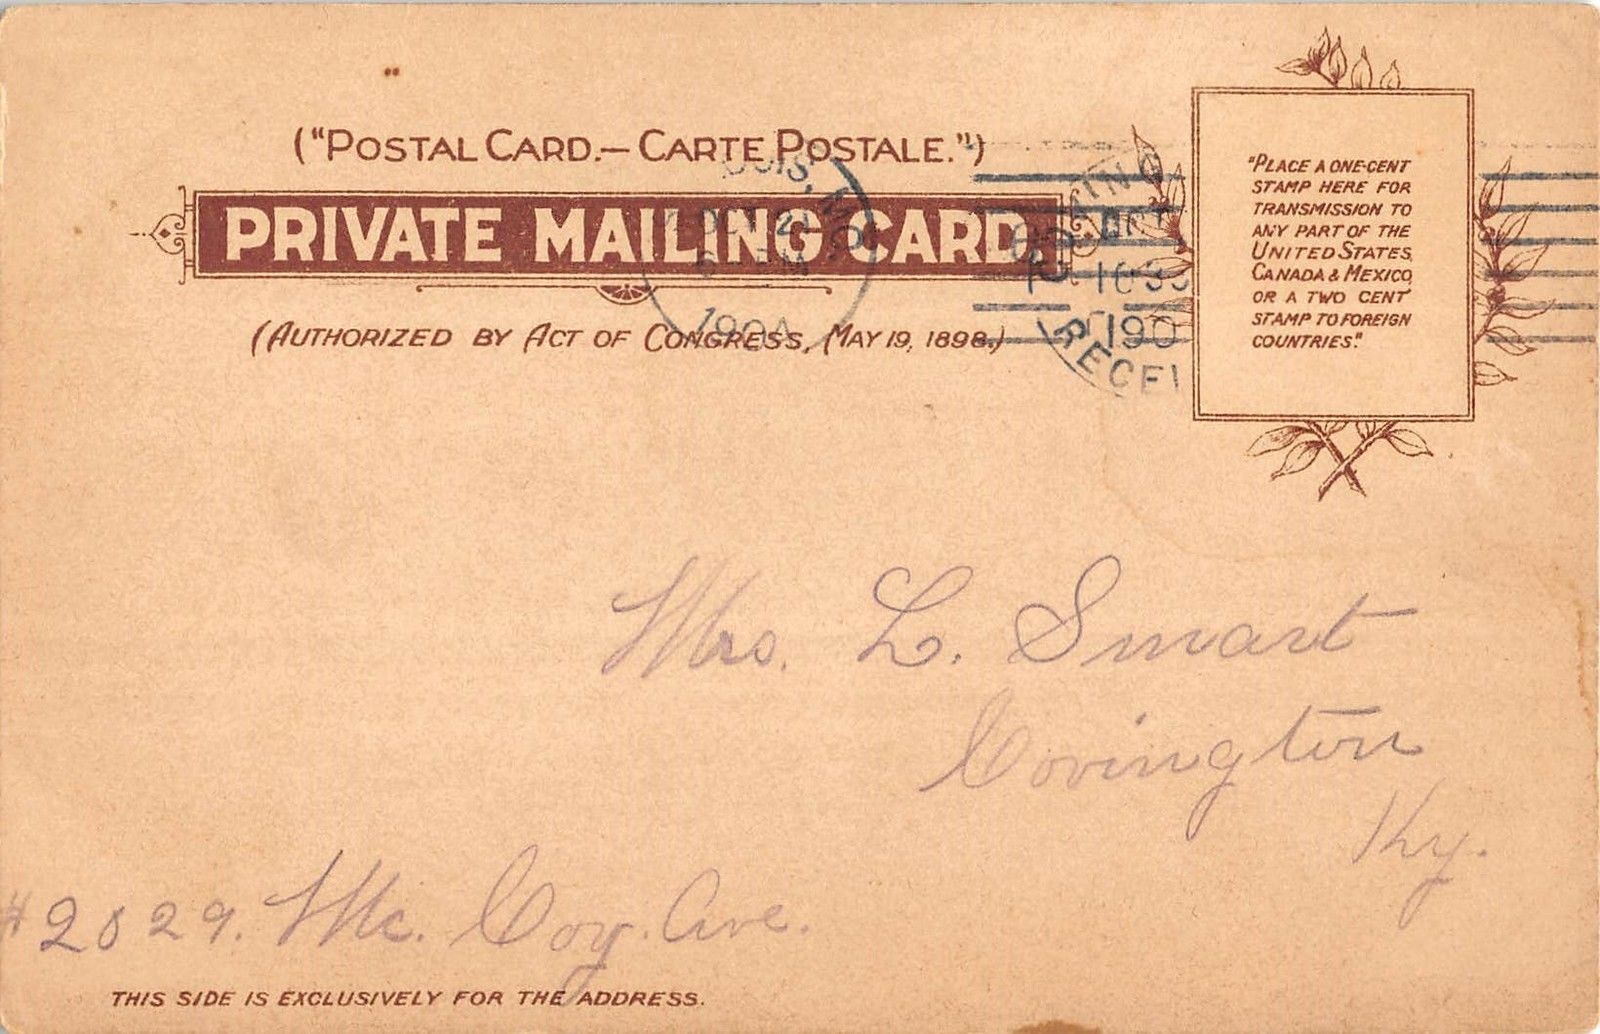 ("POSTAL CARD.—CARTE POSTALE.")
PRIVATE MAILING CARD
(AUTHORIZED BY ACT OF CONGRESS, MAY 19, 1898.)
"PLACE A ONE-CENT
STAMP HERE FOR
TRANSMISSION TO
ANY PART OF THE
UNITED STATES,
CANADA & MEXICO,
OR A TWO CENT
STAMP TO FOREIGN
COUNTRIES."
OUIS, MO.
OCT 21
PM
1904
RECEI
190
Mrs. L. Smart
Covington
Ky.
#2029. Mc. Coy. Ave.
THIS SIDE IS EXCLUSIVELY FOR THE ADDRESS.